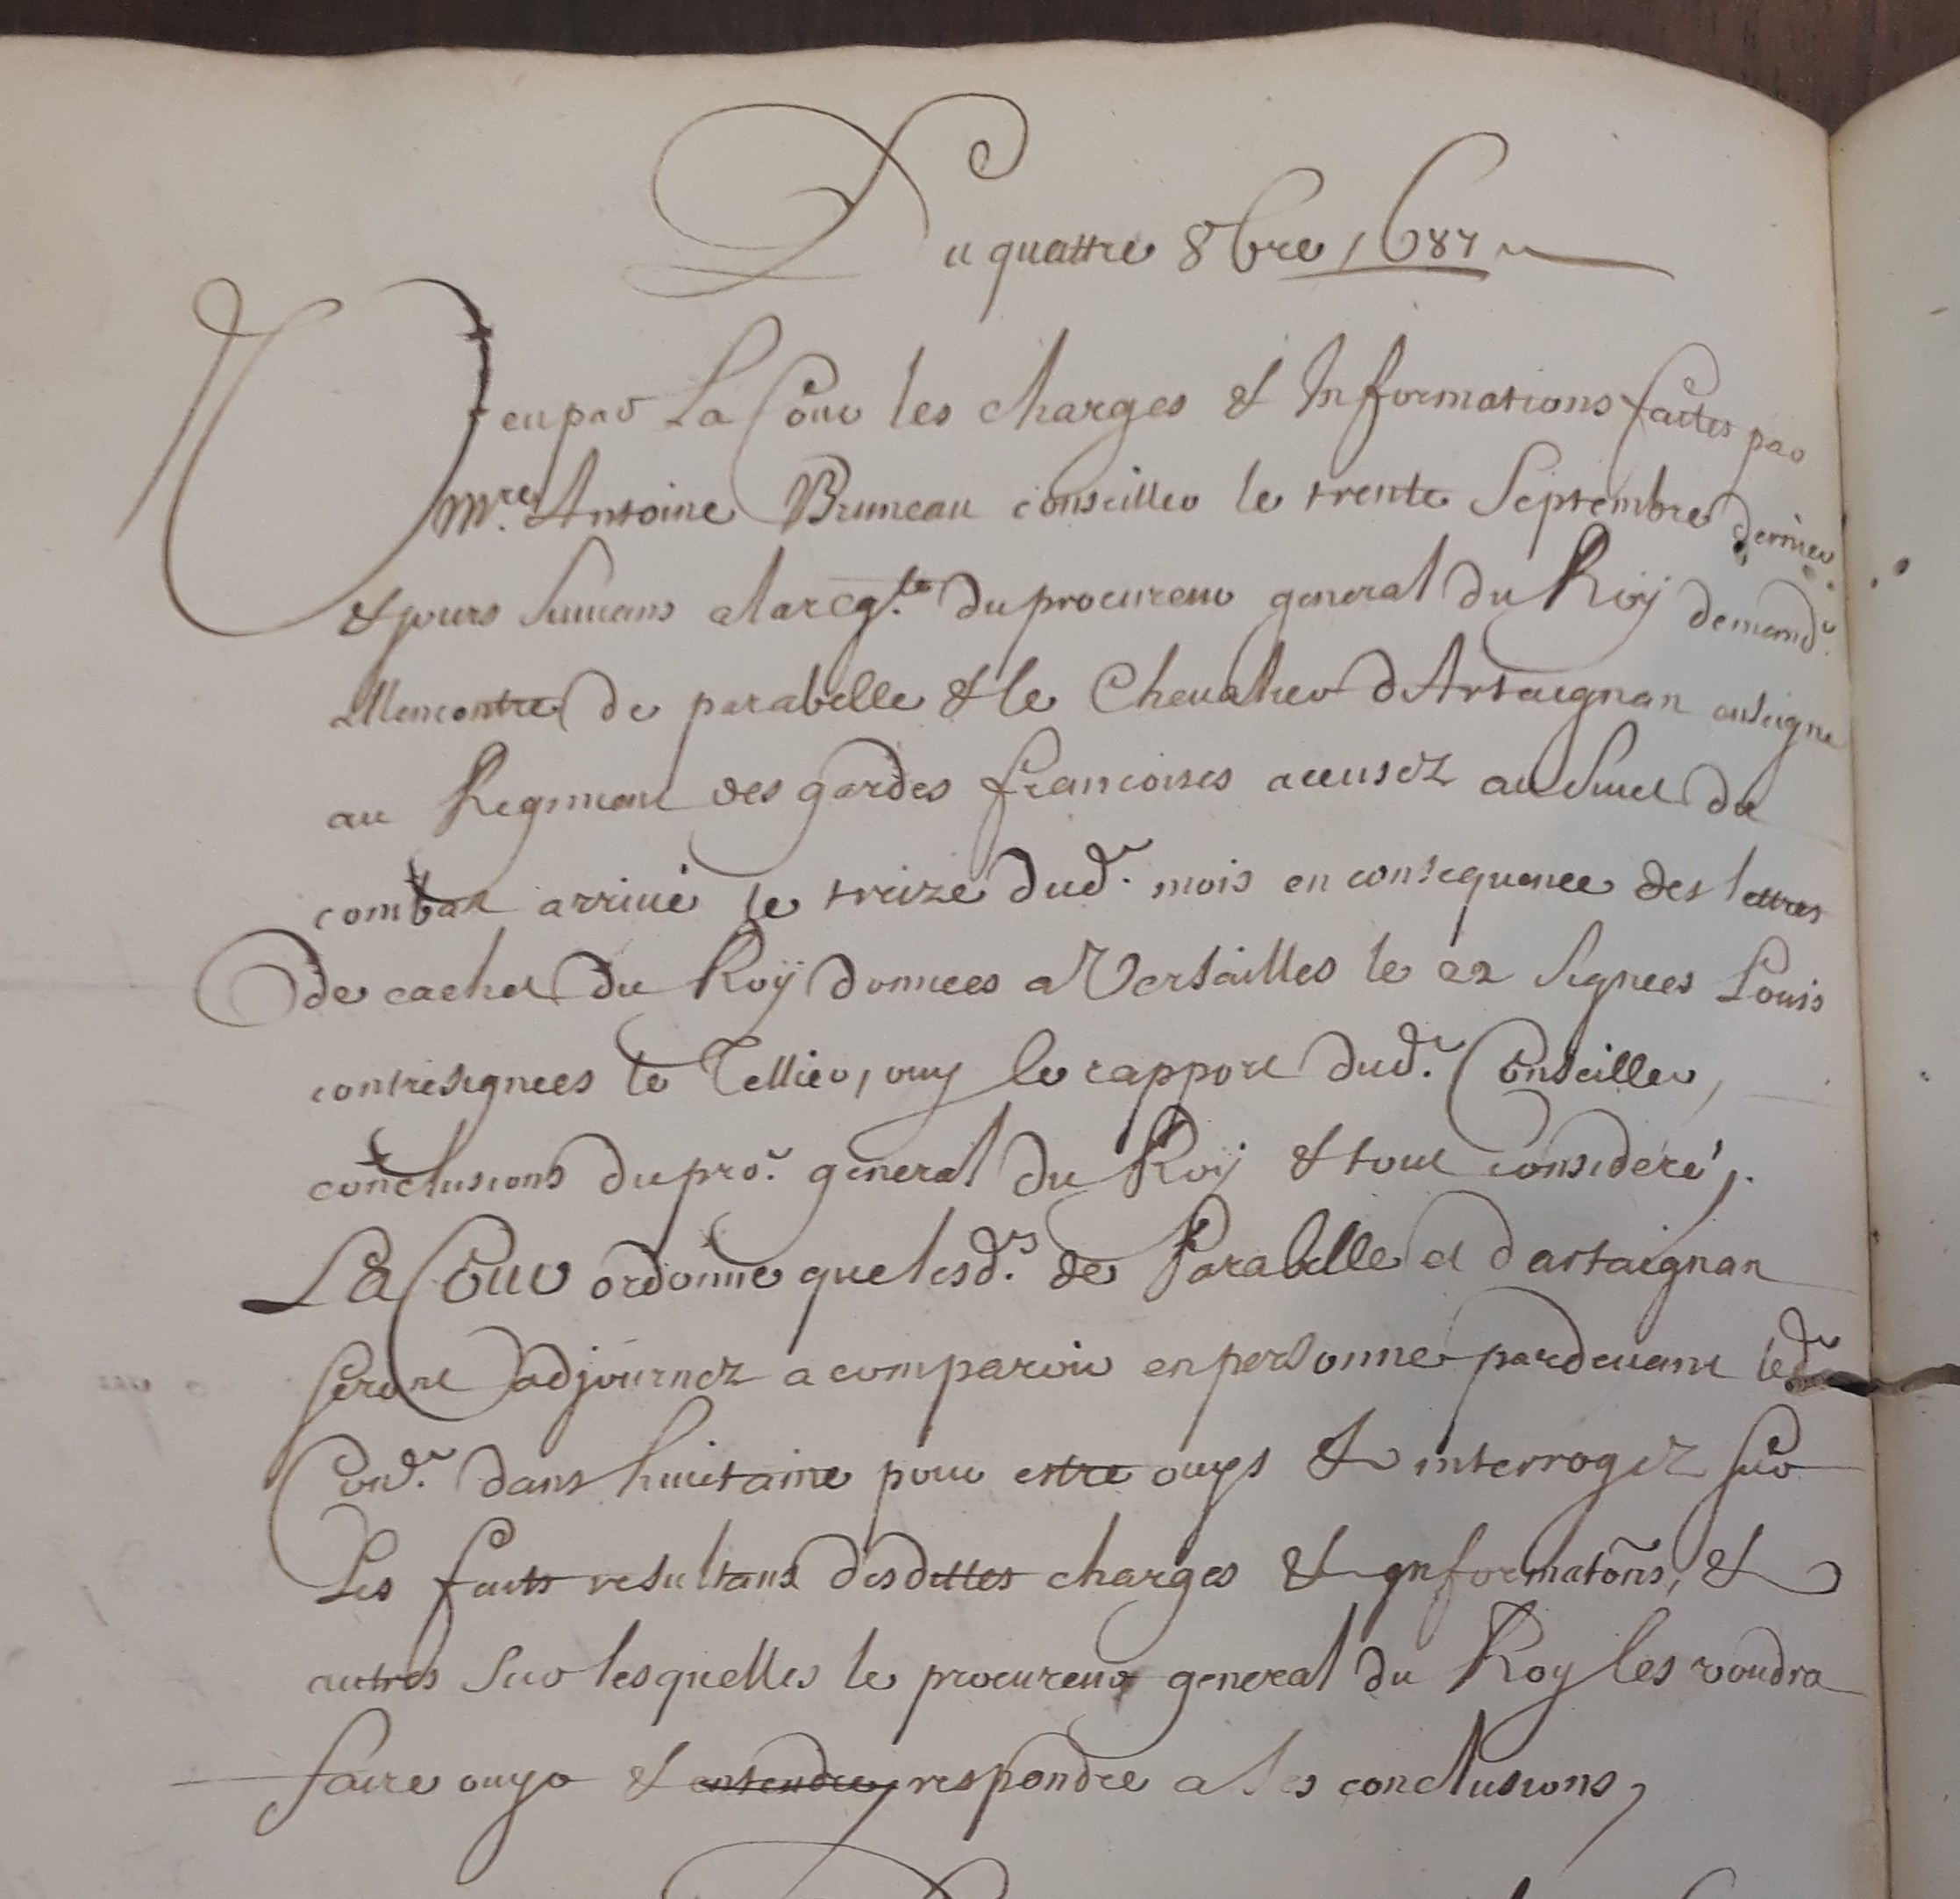 Du quattre 8bre 1687
Veu par La Cour les charges & Informations faites par
Mre. Antoine Bruneau conseiller le trente Septembre dernier
& jours suiuans a la reqte. du procureur general du Roy demandr.
Allencontre de parabelle & le Cheualier dArtaignan enseigne
au Regiment des gardes francoises accusez au suiet du
combat arriué le treize dudt. mois en consequence des lettres
de cachet du Roÿ donnees a Versailles le 22 signees Louis
contresignees le Tellier, ouy le rapport dudt. Conseiller,
conclusions du pror. general du Roy & tout consideré,.
La Cour ordonne que lesds. de Parabelle et dartaignan
seront adjournez a comparoir en personne pardeuant ledt.
Conser. dans huictaine pour estre ouys & interrogez sur
Les faits resultans desdittes charges & informatõns, &
autres sur lesquelles le procureur general du Roy les voudra
faire ouyr & entendre, respondre a ses conclusions,